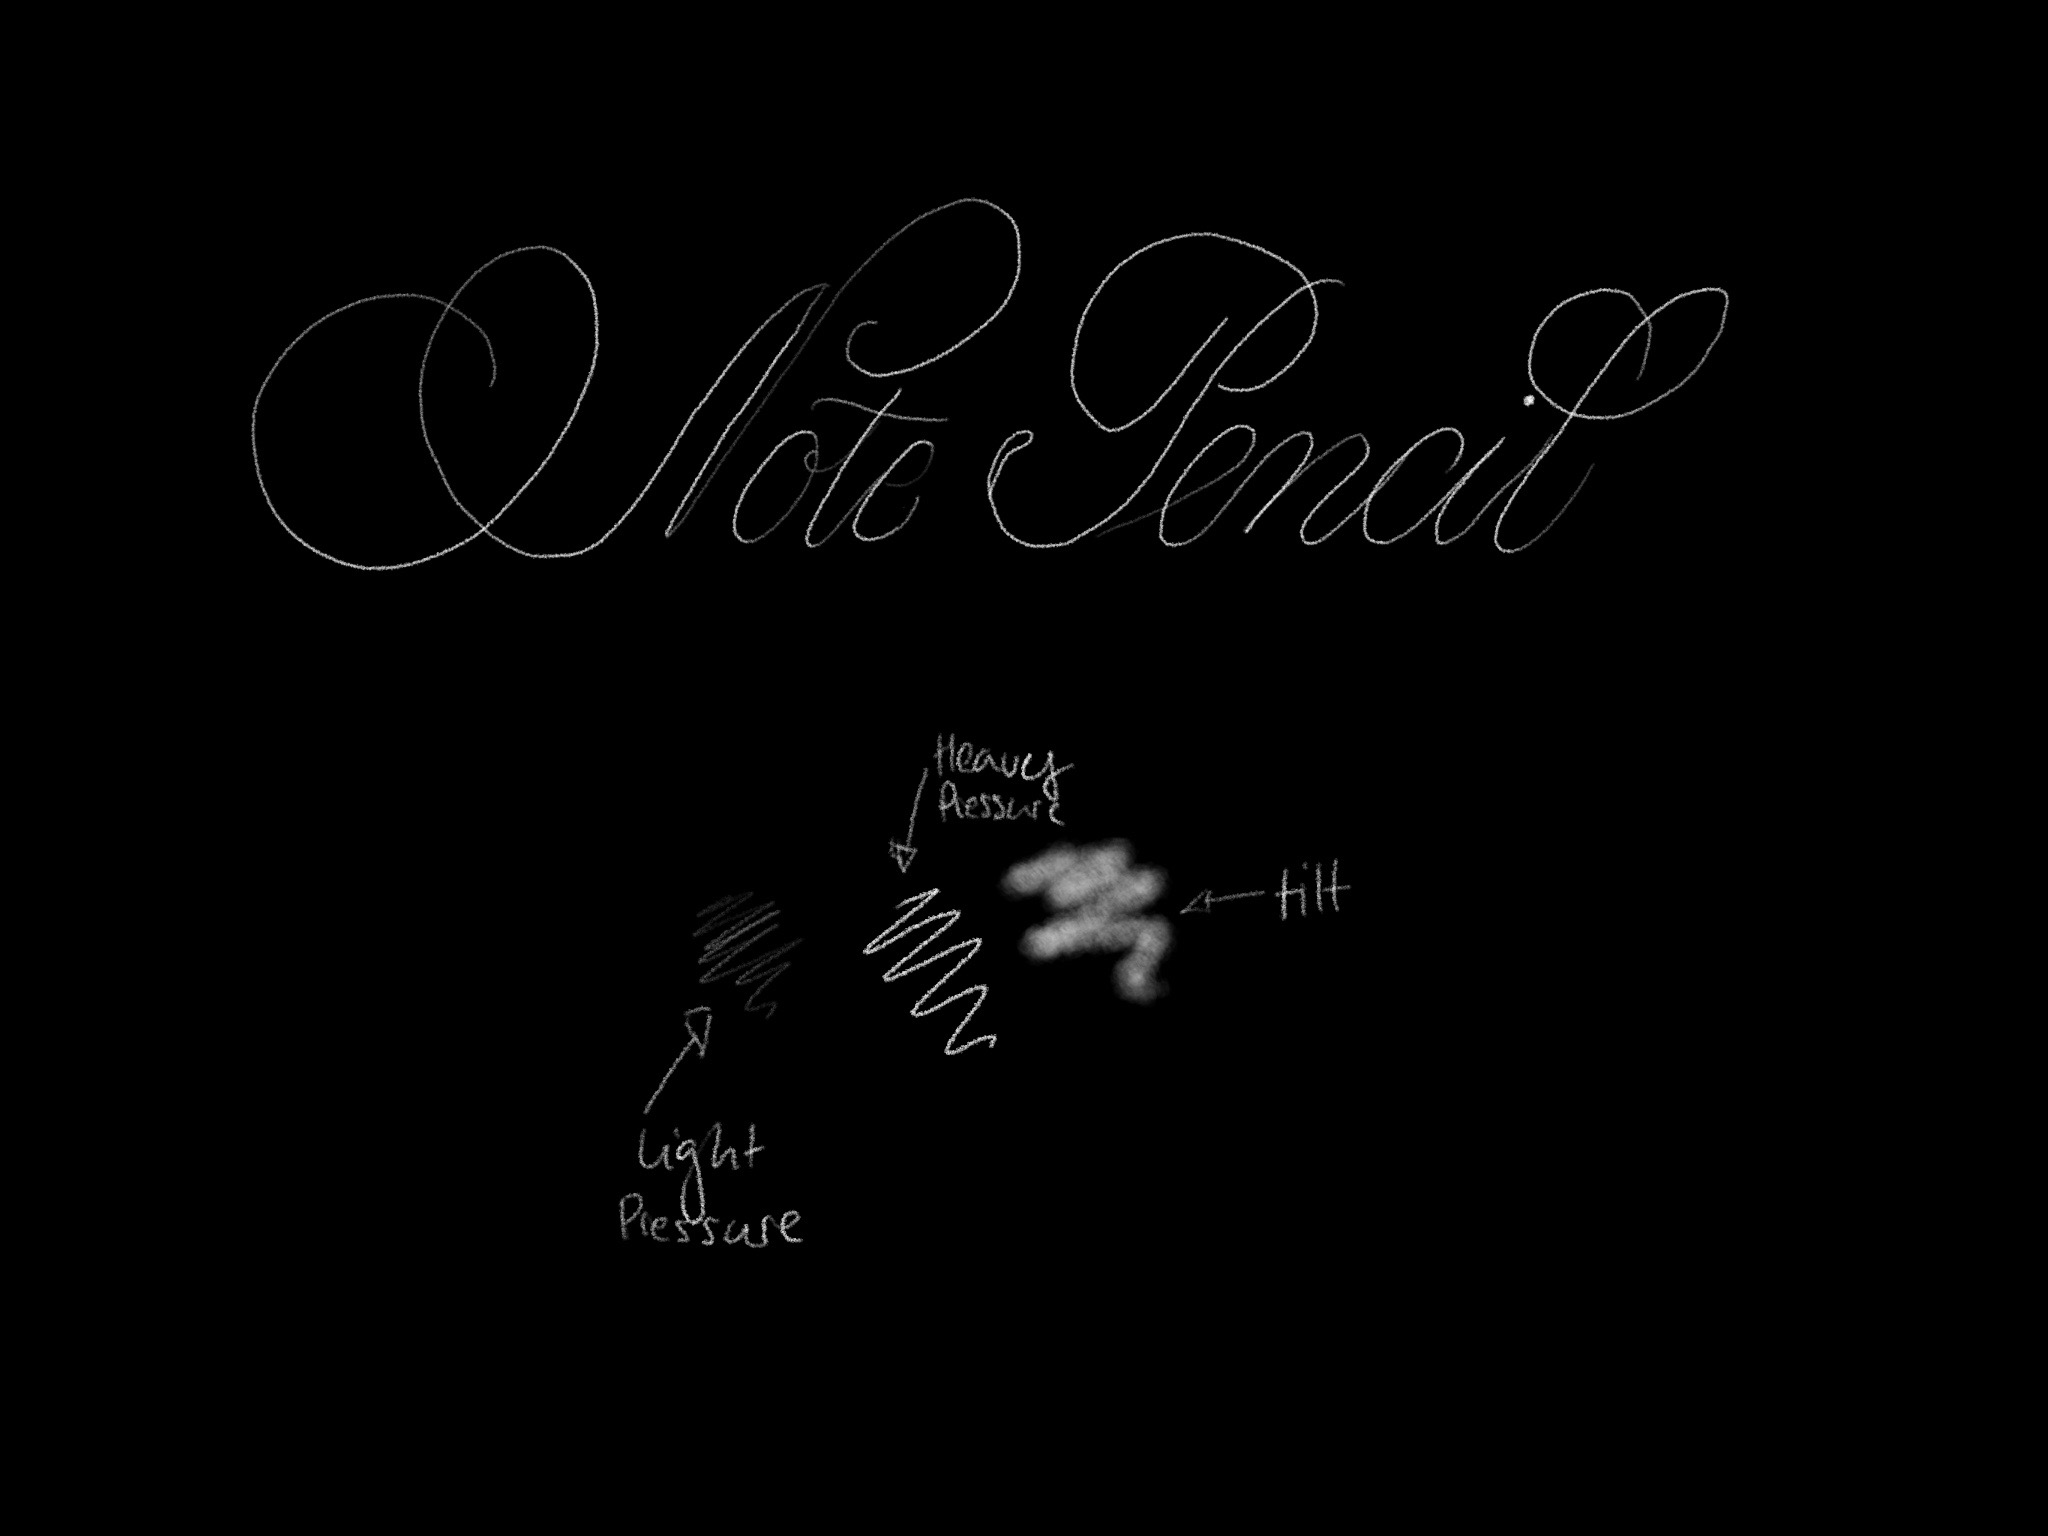 Note Pencil
Heavy
Pressure
tilt
Light
Pressure